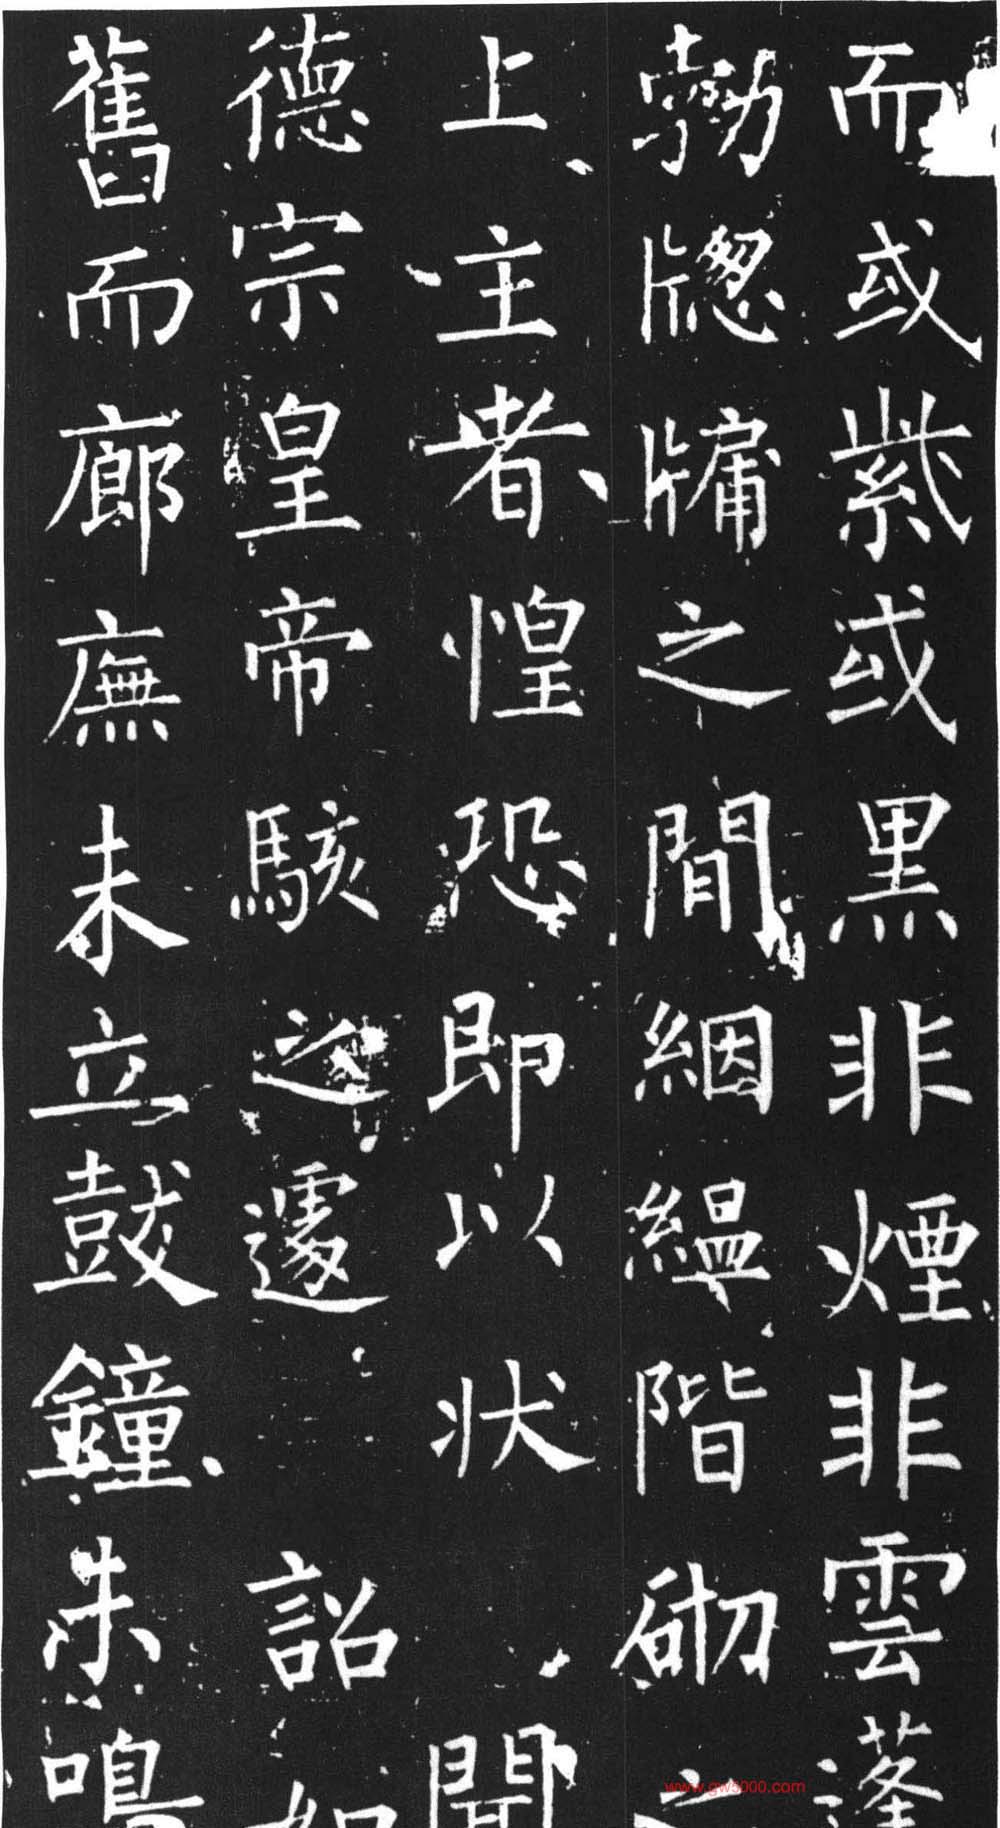 而或紫或黑非煙非雲蓬
勃牕牗之間絪縕階砌之
上主者惶恐即以状聞
德宗皇帝駭之遽詔如
舊而廊廡未立鼓鐘未鳴
www.gw5000.com